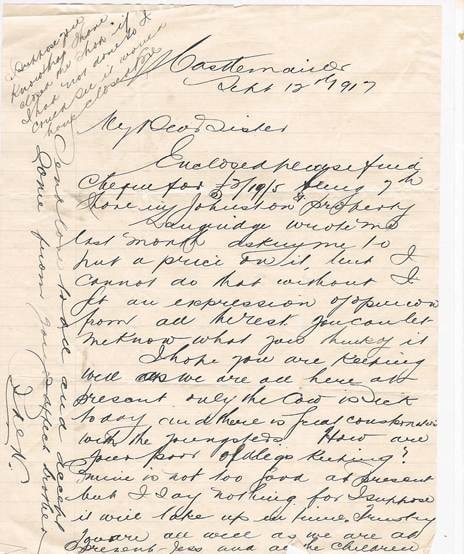 Castlemaine
Sept 12th 1917
My Dear Sister
Enclosed please find
Cheque for £3/19/5 being 7th
Share in Johnston St property
Langridge wrote me
last month asking me to
put a price on it, but I
cannot do that without I
get an expression of opinion
from all the rest you can let
me know what you think of it
I hope you are keeping
well as we are all here at
present only the Cow is sick
today and there is great consternation
with the youngsters. How are
your poor old legs keeping?
mine is not too good at present
but I say nothing for I suppose
it will take up in time.
you are all well as we are at
present Jess and all the Children
Send love to all and accept
some from your affect brother
I suppose you
know that I have
closed the Shop if
I had not done so I
could see it would
have closed me